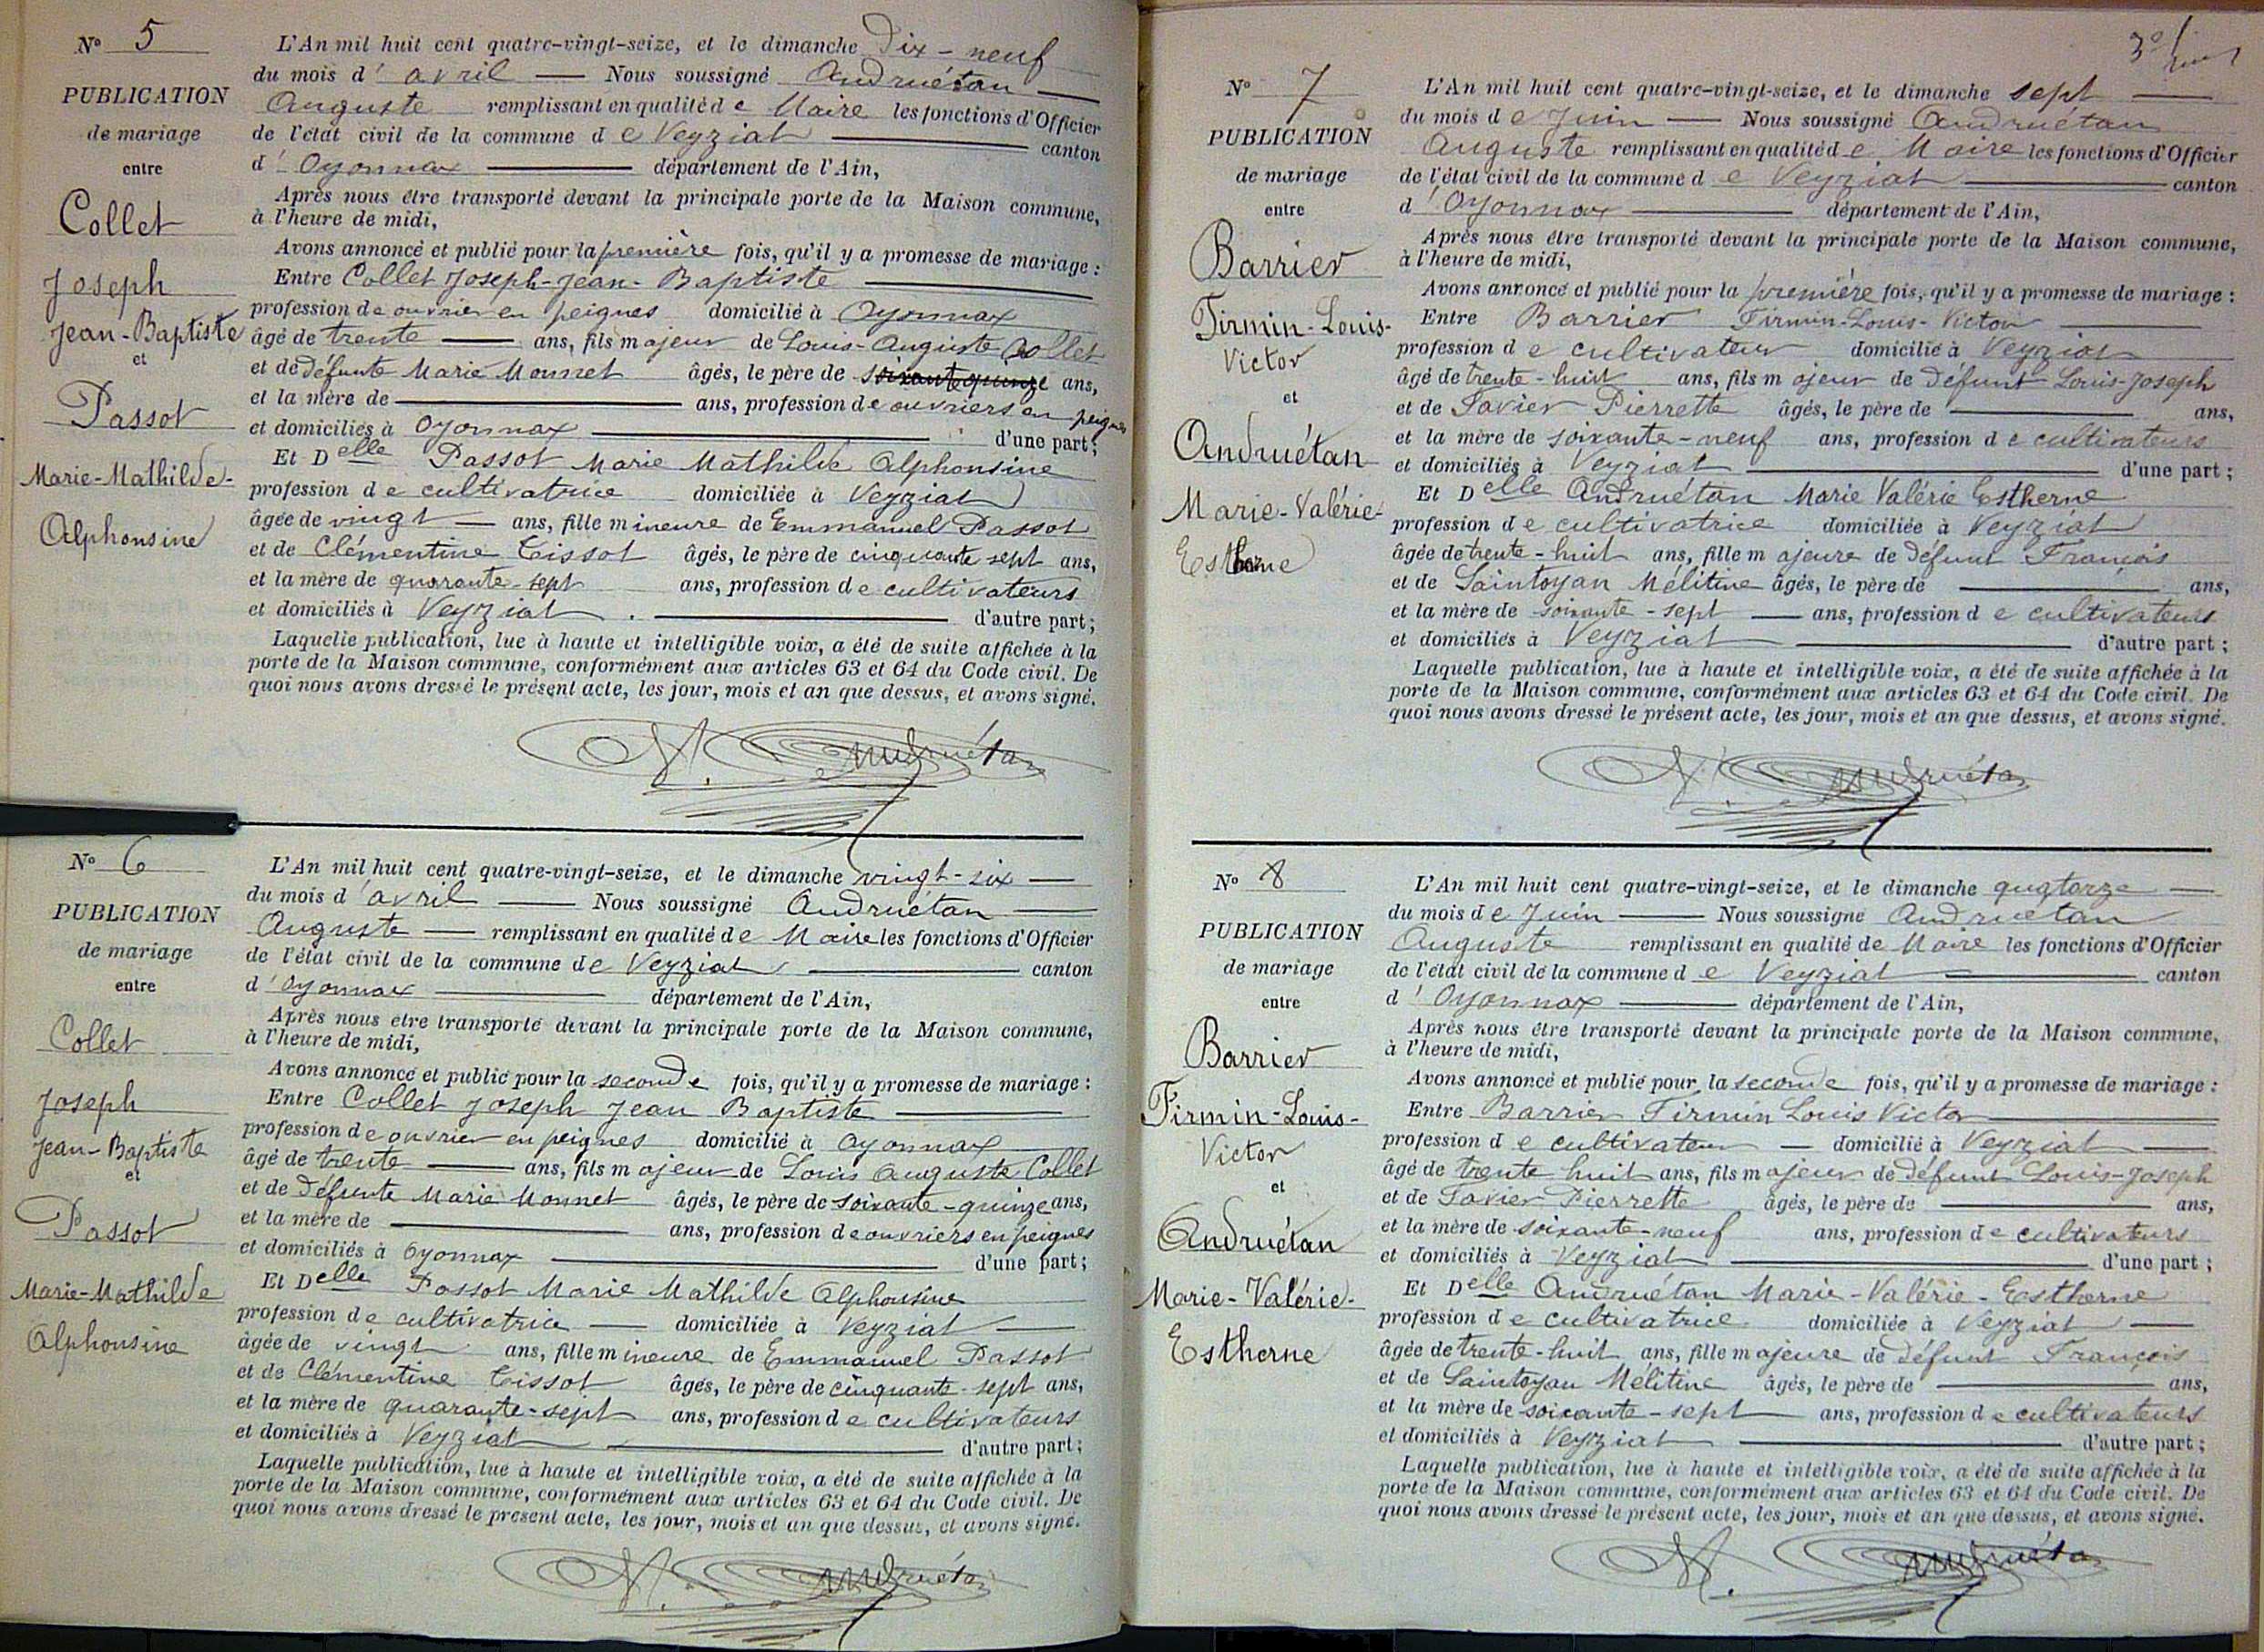 N° 5
PUBLICATION
de mariage
entre
Collet
Joseph
Jean-Baptiste
et
Passot
Marie-Mathilde-
Alphonsine
L'An mil huit cent quatre-vingt-seize, et le dimanche Dix-neuf
du mois d'avril — Nous soussigné Andruétan —
Auguste remplissant en qualité de Maire les fonctions d'Officier
de l'état civil de la commune de Veyziat — canton
d'Oyonnax — département de l'Ain,
Après nous être transporté devant la principale porte de la Maison commune,
à l'heure de midi,
Avons annoncé et publié pour la première fois, qu'il y a promesse de mariage :
Entre Collet Joseph-Jean-Baptiste —
profession de ouvrier en peignes domicilié à Oyonnax
âgé de trente — ans, fils majeur de Louis-Auguste Collet
et de Défunte Marie Monnet âgés, le père de soixante quinze ans,
et la mère de — ans, profession de ouvriers en peignes
et domiciliés à Oyonnax — d'une part;
Et Delle Passot Marie Mathilde Alphonsine
profession de cultivatrice domiciliée à Veyziat
âgée de vingt — ans, fille mineure de Emmanuel Passot
et de Clémentine Tissot âgés, le père de cinquante sept ans,
et la mère de quarante-sept ans, profession de cultivateurs
et domiciliés à Veyziat — d'autre part;
Laquelle publication, lue à haute et intelligible voix, a été de suite affichée à la
porte de la Maison commune, conformément aux articles 63 et 64 du Code civil. De
quoi nous avons dressé le présent acte, les jour, mois et an que dessus, et avons signé.
A. Andruétan
N° 6
PUBLICATION
de mariage
entre
Collet
Joseph
Jean-Baptiste
et
Passot
Marie-Mathilde
Alphonsine
L'An mil huit cent quatre-vingt-seize, et le dimanche vingt-six —
du mois d'avril — Nous soussigné Andruétan —
Auguste — remplissant en qualité de Maire les fonctions d'Officier
de l'état civil de la commune de Veyziat — canton
d'Oyonnax — département de l'Ain,
Après nous être transporté devant la principale porte de la Maison commune,
à l'heure de midi,
Avons annoncé et publié pour la seconde fois, qu'il y a promesse de mariage :
Entre Collet Joseph Jean Baptiste —
profession de ouvrier en peignes domicilié à Oyonnax
âgé de trente — ans, fils majeur de Louis Auguste Collet
et de Défunte Marie Monnet âgés, le père de soixante-quinze ans,
et la mère de — ans, profession de ouvriers en peignes
et domiciliés à Oyonnax — d'une part;
Et Delle Passot Marie Mathilde Alphonsine
profession de cultivatrice — domiciliée à Veyziat —
âgée de vingt ans, fille mineure de Emmanuel Passot
et de Clémentine Tissot âgés, le père de cinquante-sept ans,
et la mère de quarante-sept ans, profession de cultivateurs
et domiciliés à Veyziat — d'autre part;
Laquelle publication, lue à haute et intelligible voix, a été de suite affichée à la
porte de la Maison commune, conformément aux articles 63 et 64 du Code civil. De
quoi nous avons dressé le présent acte, les jour, mois et an que dessus, et avons signé.
A. Andruétan
N° 7
PUBLICATION
de mariage
entre
Barrier
Firmin-Louis-
Victor
et
Andruétan
Marie-Valérie-
Estherne
L'An mil huit cent quatre-vingt-seize, et le dimanche sept —
du mois de Juin — Nous soussigné Andruétan
Auguste remplissant en qualité de Maire les fonctions d'Officier
de l'état civil de la commune de Veyziat — canton
d'Oyonnax — département de l'Ain,
Après nous être transporté devant la principale porte de la Maison commune,
à l'heure de midi,
Avons annoncé et publié pour la première fois, qu'il y a promesse de mariage :
Entre Barrier Firmin-Louis-Victor —
profession de cultivateur domicilié à Veyziat
âgé de trente-huit ans, fils majeur de Défunt Louis-Joseph
et de Savier Pierrette âgés, le père de — ans,
et la mère de soixante-neuf ans, profession de cultivateurs
et domiciliés à Veyziat — d'une part;
Et Delle Andruétan Marie Valérie Estherne
profession de cultivatrice domiciliée à Veyziat
âgée de trente-huit ans, fille majeure de Défunt François
et de Saintoyan Mélitine âgés, le père de — ans,
et la mère de soixante-sept — ans, profession de cultivateurs
et domiciliés à Veyziat — d'autre part;
Laquelle publication, lue à haute et intelligible voix, a été de suite affichée à la
porte de la Maison commune, conformément aux articles 63 et 64 du Code civil. De
quoi nous avons dressé le présent acte, les jour, mois et an que dessus, et avons signé.
A. Andruétan
N° 8
PUBLICATION
de mariage
entre
Barrier
Firmin-Louis-
Victor
et
Andruétan
Marie-Valérie-
Estherne
L'An mil huit cent quatre-vingt-seize, et le dimanche quatorze —
du mois de Juin — Nous soussigné Andruétan
Auguste remplissant en qualité de Maire les fonctions d'Officier
de l'état civil de la commune de Veyziat — canton
d'Oyonnax — département de l'Ain,
Après nous être transporté devant la principale porte de la Maison commune,
à l'heure de midi,
Avons annoncé et publié pour la seconde fois, qu'il y a promesse de mariage :
Entre Barrier Firmin Louis Victor
profession de cultivateur — domicilié à Veyziat —
âgé de trente huit ans, fils majeur de défunt Louis-Joseph
et de Savier Pierrette âgés, le père de — ans,
et la mère de soixante-neuf ans, profession de cultivateurs
et domiciliés à Veyziat — d'une part;
Et Delle Andruétan Marie-Valérie-Estherne
profession de cultivatrice domiciliée à Veyziat —
âgée de trente-huit ans, fille majeure de défunt François
et de Saintoyan Mélitine âgés, le père de — ans,
et la mère de soixante-sept — ans, profession de cultivateurs
et domiciliés à Veyziat — d'autre part;
Laquelle publication, lue à haute et intelligible voix, a été de suite affichée à la
porte de la Maison commune, conformément aux articles 63 et 64 du Code civil. De
quoi nous avons dressé le présent acte, les jour, mois et an que dessus, et avons signé.
A. Andruétan